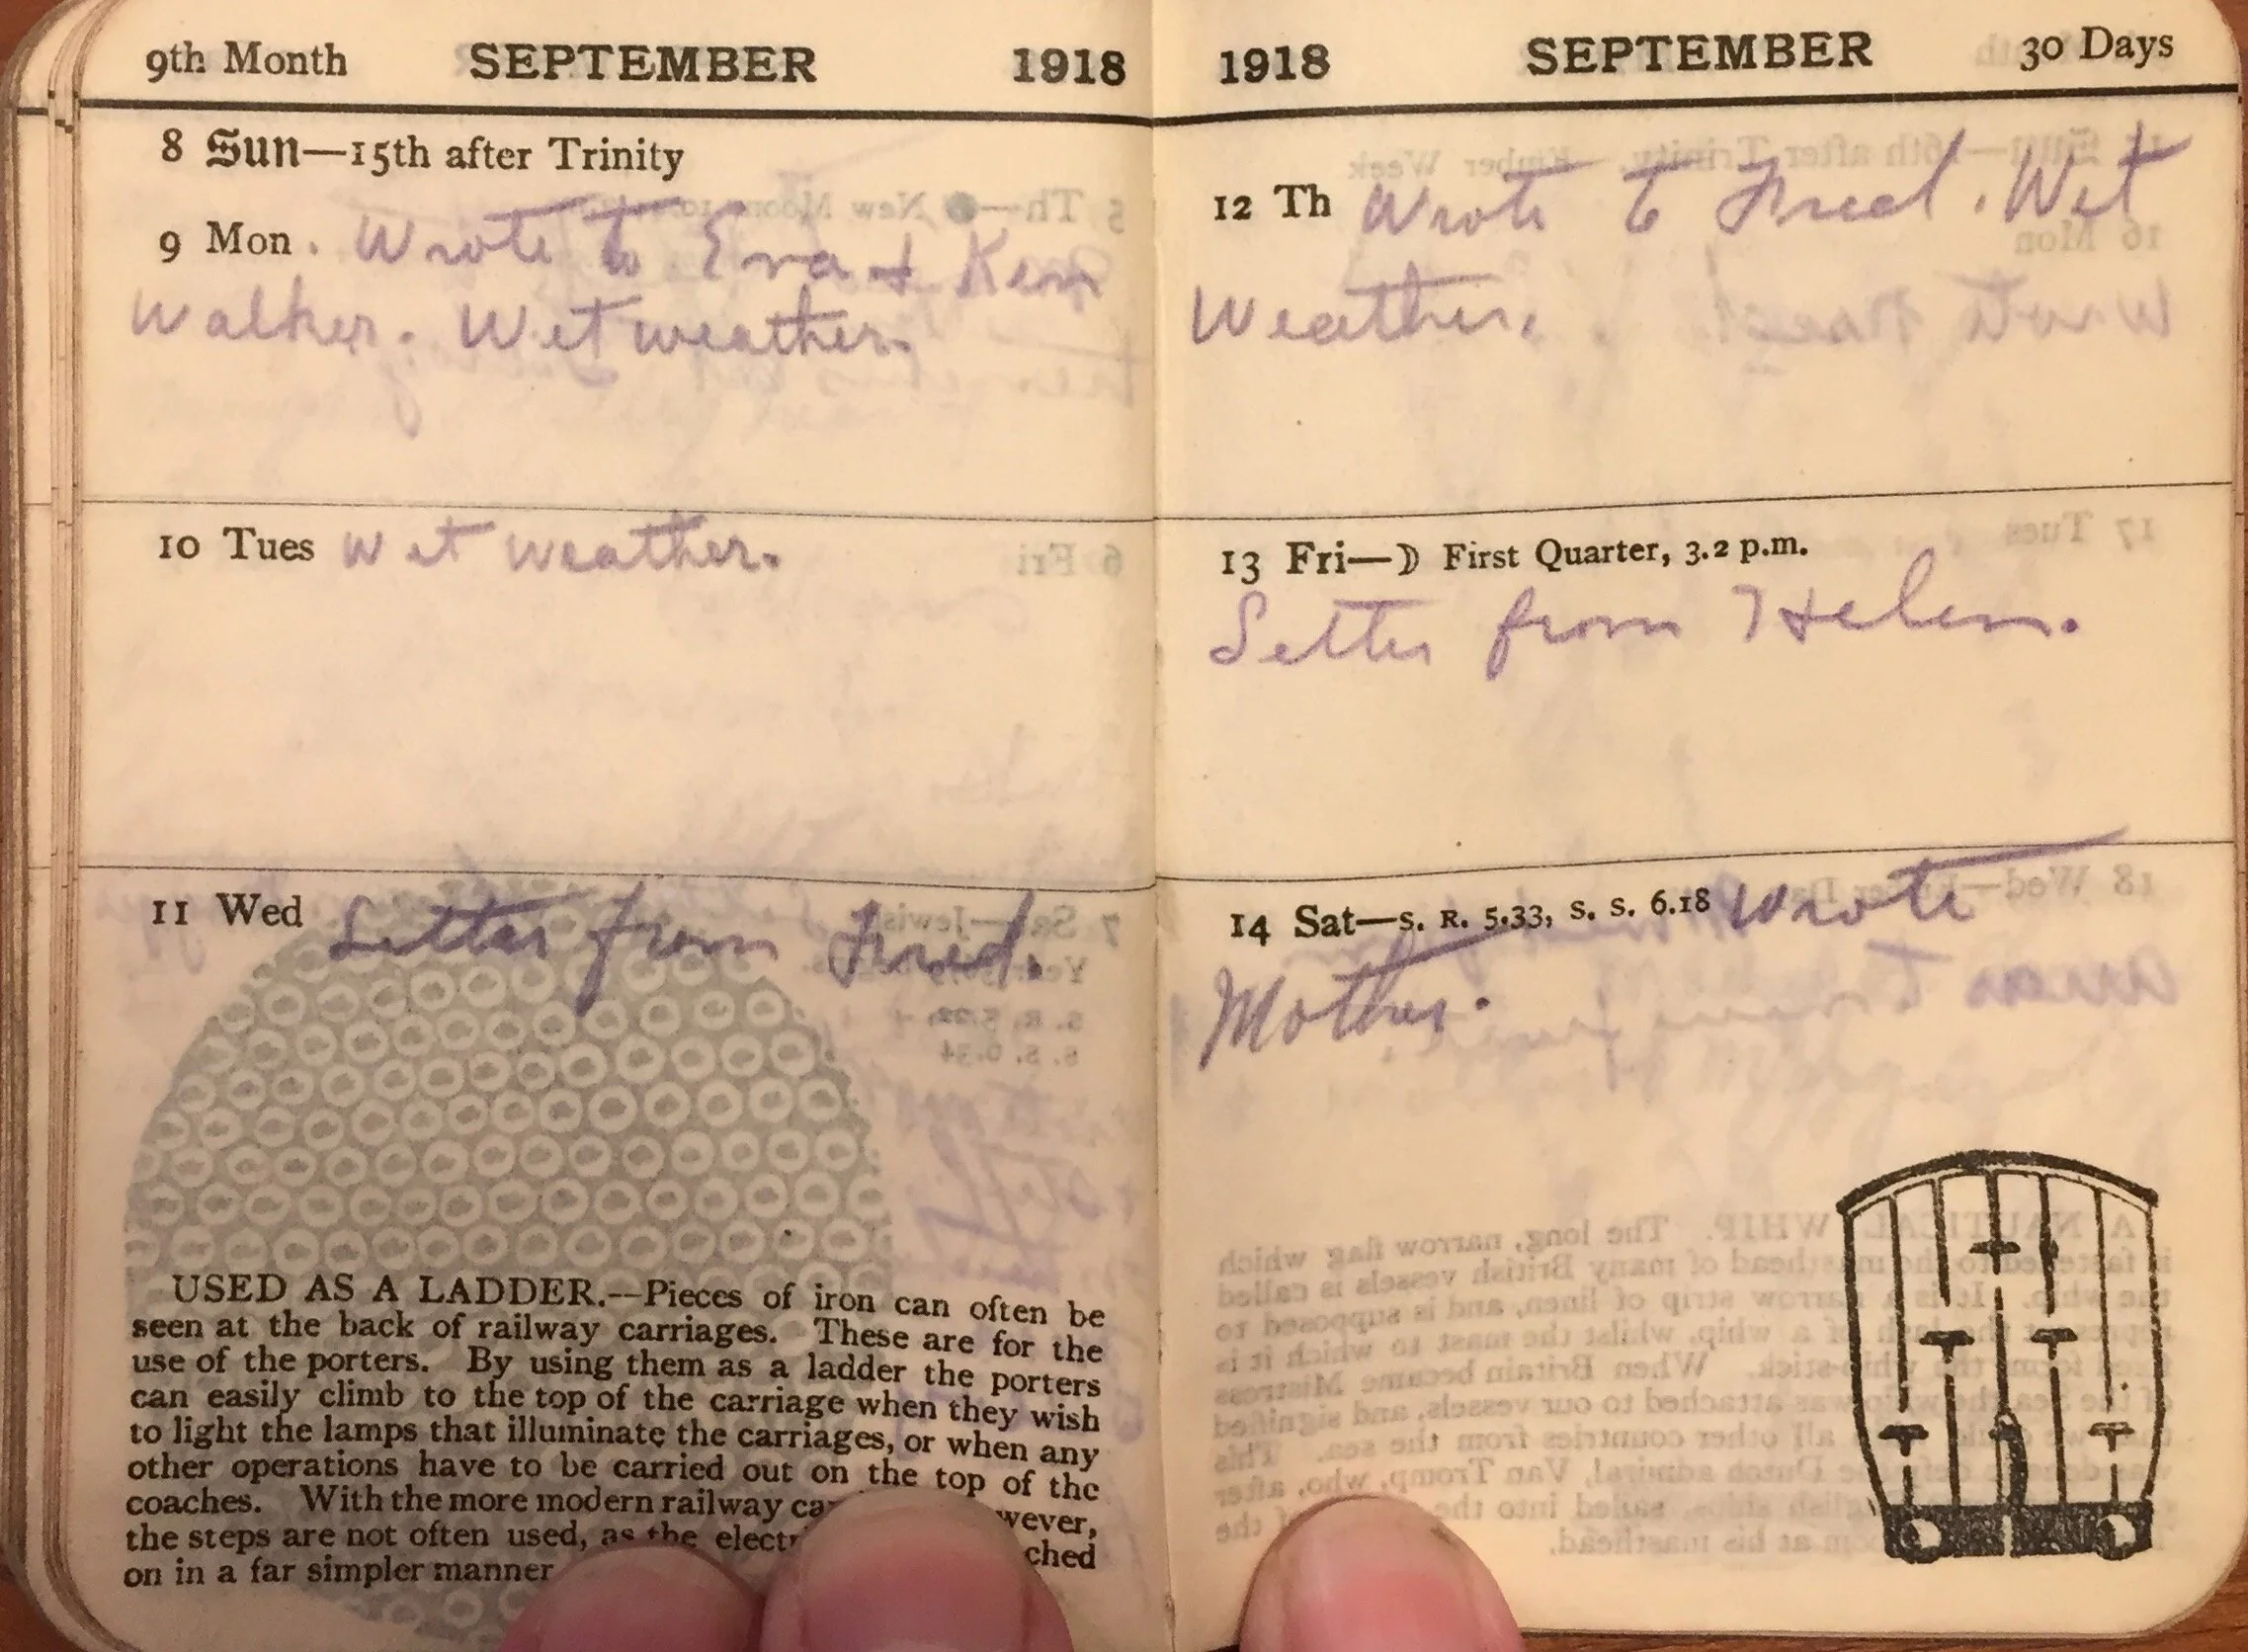 9th Month SEPTEMBER 1918
8 Sun—15th after Trinity
9 Mon. Wrote to Eva & Ken
Walker. Wet weather.
10 Tues Wet weather.
11 Wed Letter from Fred.
USED AS A LADDER.—Pieces of iron can often be
seen at the back of railway carriages. These are for the
use of the porters. By using them as a ladder the porters
can easily climb to the top of the carriage when they wish
to light the lamps that illuminate the carriages, or when any
other operations have to be carried out on the top of the
coaches. With the more modern railway
the steps are not often used, as the
on in a far simpler manner
1918 SEPTEMBER 30 Days
12 Th Wrote to Fred. Wet
Weather.
13 Fri—☽ First Quarter, 3.2 p.m.
Letter from Helen.
14 Sat—S. R. 5.33, S. S. 6.18 Wrote
Mother.